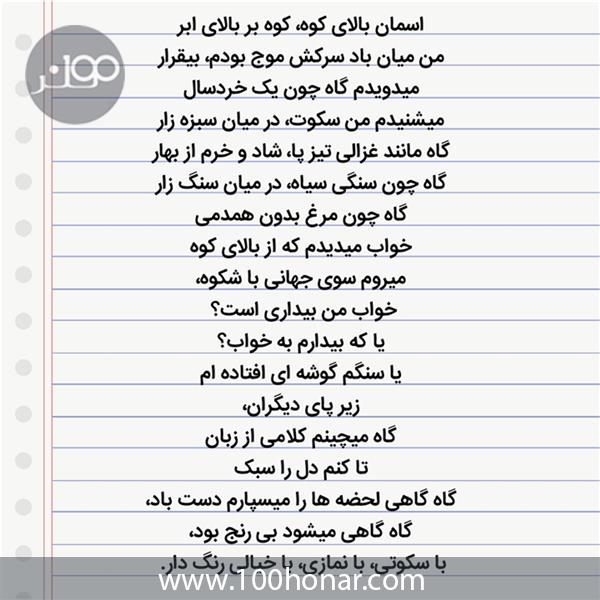 ۱۰۰هنر
اسمان بالای کوه، کوه بر بالای ابر
من میان باد سرکش موج بودم، بیقرار
میدویدم گاه چون یک خردسال
میشنیدم من سکوت، در میان سبزه زار
گاه مانند غزالی تیز پا، شاد و خرم از بهار
گاه چون سنگی سیاه، در میان سنگ زار
گاه چون مرغ بدون همدمی
خواب میدیدم که از بالای کوه
میروم سوی جهانی با شکوه،
خواب من بیداری است؟
یا که بیدارم به خواب؟
یا سنگم گوشه ای افتاده ام
زیر پای دیگران،
گاه میچینم کلامی از زبان
تا کنم دل را سبک
گاه گاهی لحضه ها را میسپارم دست باد،
گاه گاهی میشود بی رنج بود،
با سکوتی، با نمازی، با خیالی رنگ دار.
www.100honar.com